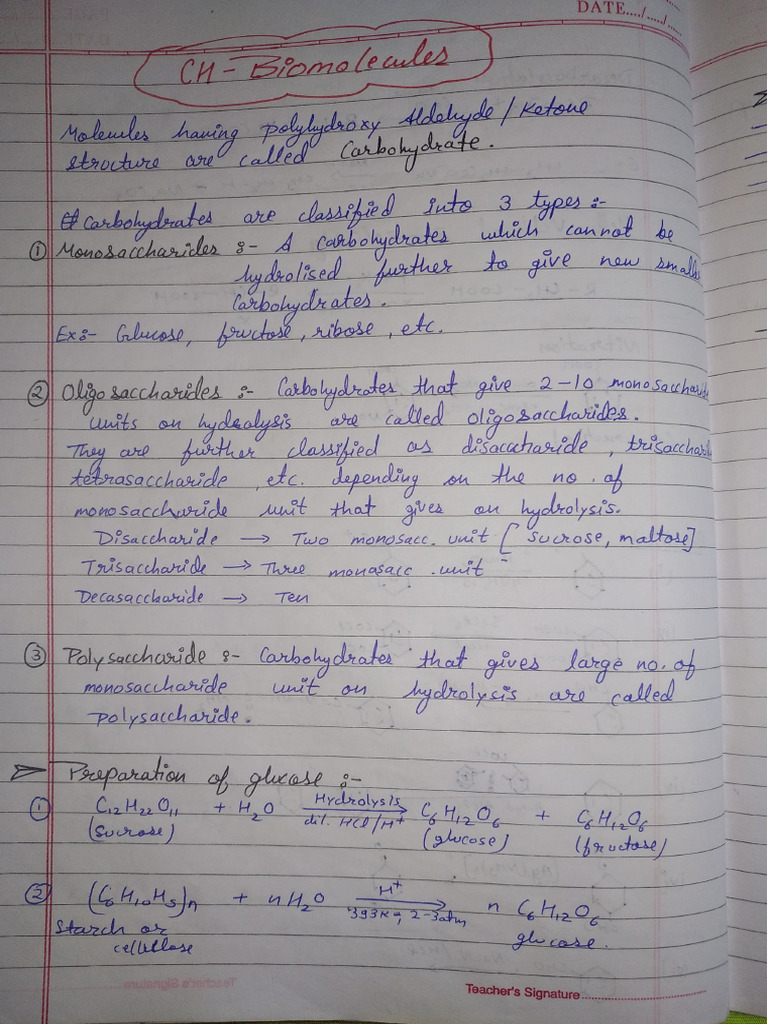 DATE..../...../.....
CH - Biomolecules
Molecules having polyhydroxy Aldehyde / Ketone
structure are called Carbohydrate.
# Carbohydrates are classified into 3 types :-
① Monosaccharides :- A carbohydrates which cannot be
hydrolised further to give new smalle
Carbohydrates.
Ex:- Glucose, fructose, ribose, etc.
② Oligosaccharides :- Carbohydrates that give 2-10 monosaccharide
units on hydralysis are called oligosaccharides.
They are further classified as disaccharide, trisaccharid
tetrasaccharide, etc. depending on the no. of
monosaccharide unit that gives on hydrolysis.
Disaccharide → Two monosacc. unit [Sucrose, maltose]
Trisaccharide → Three monasacc. unit -
Decasaccharide → Ten
③ Polysaccharide :- Carbohydrates that gives large no. of
monosaccharide unit on hydrolysis are called
polysaccharide.
➢ Preparation of glucose :-
① C₁₂H₂₂O₁₁ + H₂O Hydrolysis → dil. HCl/H⁺ C₆H₁₂O₆ + C₆H₁₂O₆
(sucrose) (glucose) (fructose)
② (C₆H₁₀H₅)n + nH₂O H⁺ → 393K, 2-3atm n C₆H₁₂O₆
Starch or glucose.
cellulose
Teacher's Signature